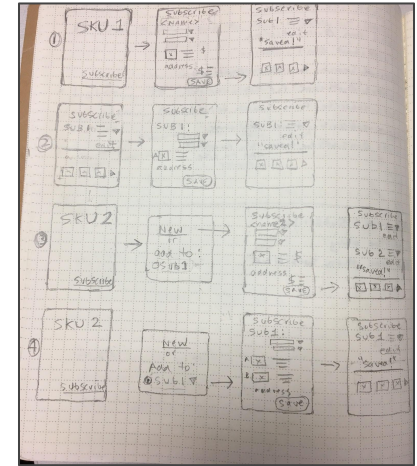 ①
SKU 1
Subscribe
Subscribe
<name>
$
address
$
SAVE
Subscribe
Sub 1:
edit
"saved!"
②
Subscribe
SUB 1:
edit
Subscribe
SUB 1:
address
SAVE
Subscribe
SUB 1:
edit
"saved!"
③
SKU2
Subscribe
New
or
add to:
Sub 1
Subscribe
<name>
$
address
$
SAVE
Subscribe
Sub 1
edit
Sub 2
edit
"saved!"
④
SKU 2
Subscribe
New
or
Add to:
Sub 1
Subscribe
Sub 1:
A
B
address
Save
Subscribe
Sub 1
edit
"saved!"